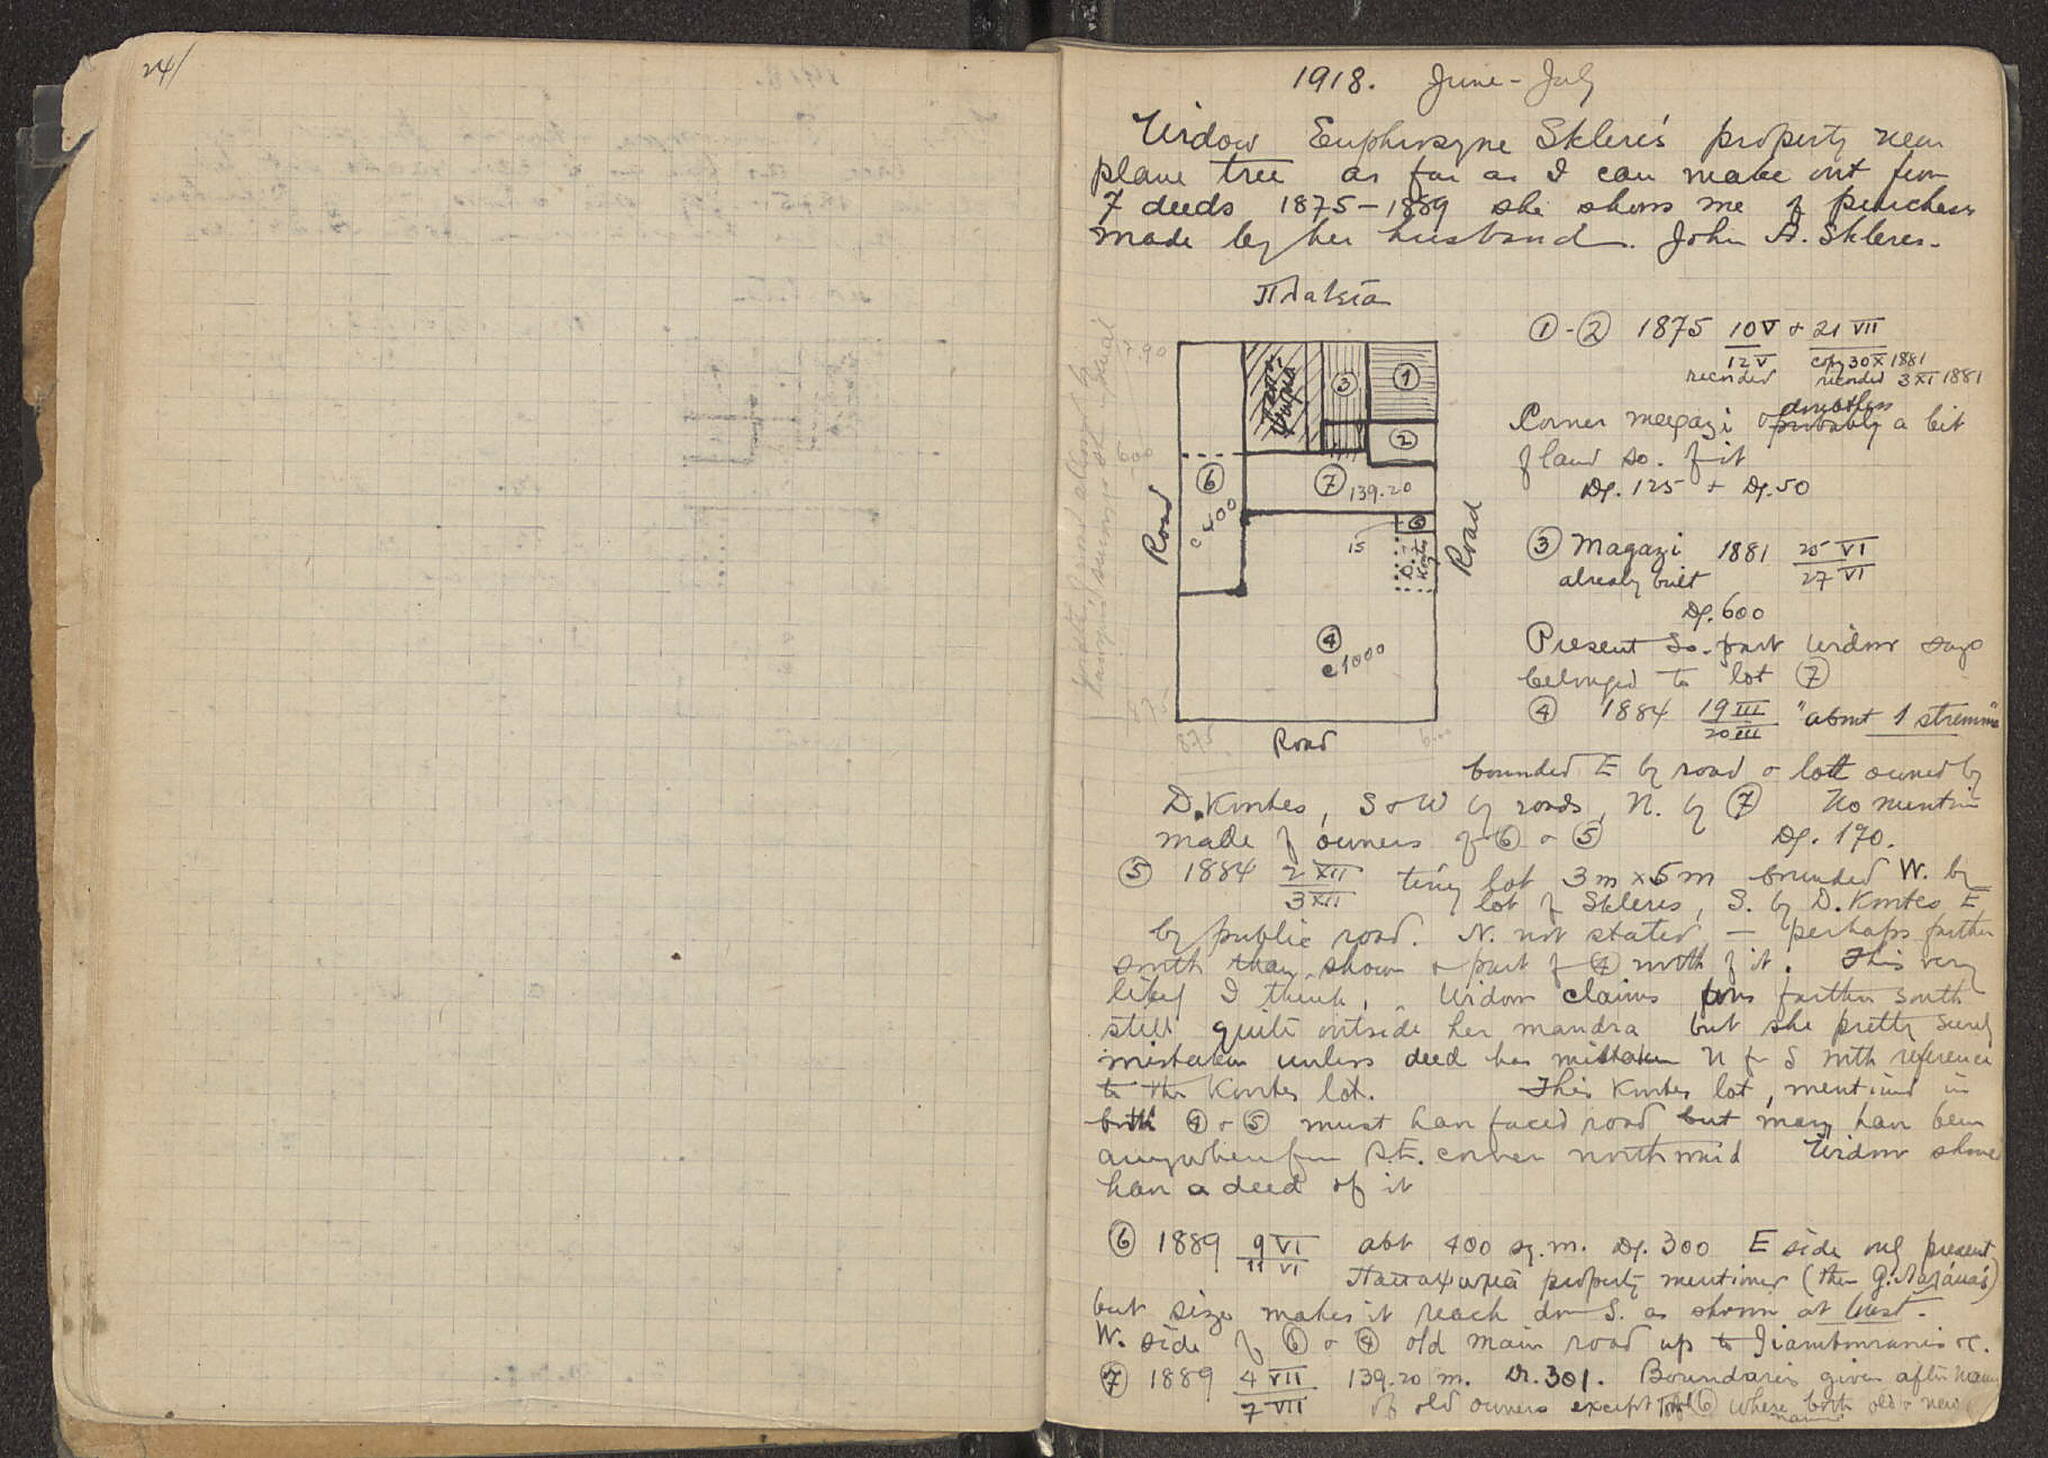 24/
1918. June - July
Widow Euphrosyne Skleres' property near
plane tree as far as I can make out from
7 deeds 1875-1889 she shows me of purchases
made by her husband. John A. Skleres.
Πλατεία
① - ② 1875 10 V & 21 VII
12 V copy 30 X 1881
recorded recorded 3 XI 1881
Corner magazi & probably doubtless a bit
of land so. of it
Dr. 125 + Dr. 50
③ Magazi 1881 25 VI
already built 27 VI
Dr. 600
Present So. part widow says
belonged to lot ⑦
④ 1884 19 III "about 1 stremma"
20 III
③
①
②
⑥
c 400
⑦ 139.20
⑤
15
D. Kontes
④
c 1000
Road
Road
Road
875
bounded E by road & lot owned by
D. Kontes, S & W by roads, N. by ⑦ No mention
made of owners of ⑥ & ⑤ Dr. 170.
⑤ 1884 2 XII tiny lot 3m x 5m bounded W. by
3 XII lot of Skleres, S. by D. Kontes E
by public road. N. not stated — perhaps farther
south than shown & part of ④ north of it. This very
likely I think. Widow claims farther south
still quite outside her mandra but she pretty surely
mistaken unless deed has mistaken N for S with reference
to the Kontes lot. This Kontes lot, mentioned in
both ④ & ⑤ must have faced road but may have been
anywhere from S.E. corner northward Widow should
have a deed of it
⑥ 1889 9 VI abt 400 sq. m. Dr. 300 E side only present
11 VI property mentioned (then G.
but size makes it reach down S. as shown at least.
W. side of ⑥ & ④ old main road up to
⑦ 1889 4 VII 139.20 m. Dr. 301. Boundaries given after names
7 VII of old owners except of ⑥ where both old & new
names